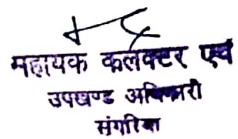 महायक कलेक्टर एवं
उपखण्ड अधिकारी
संगरिया